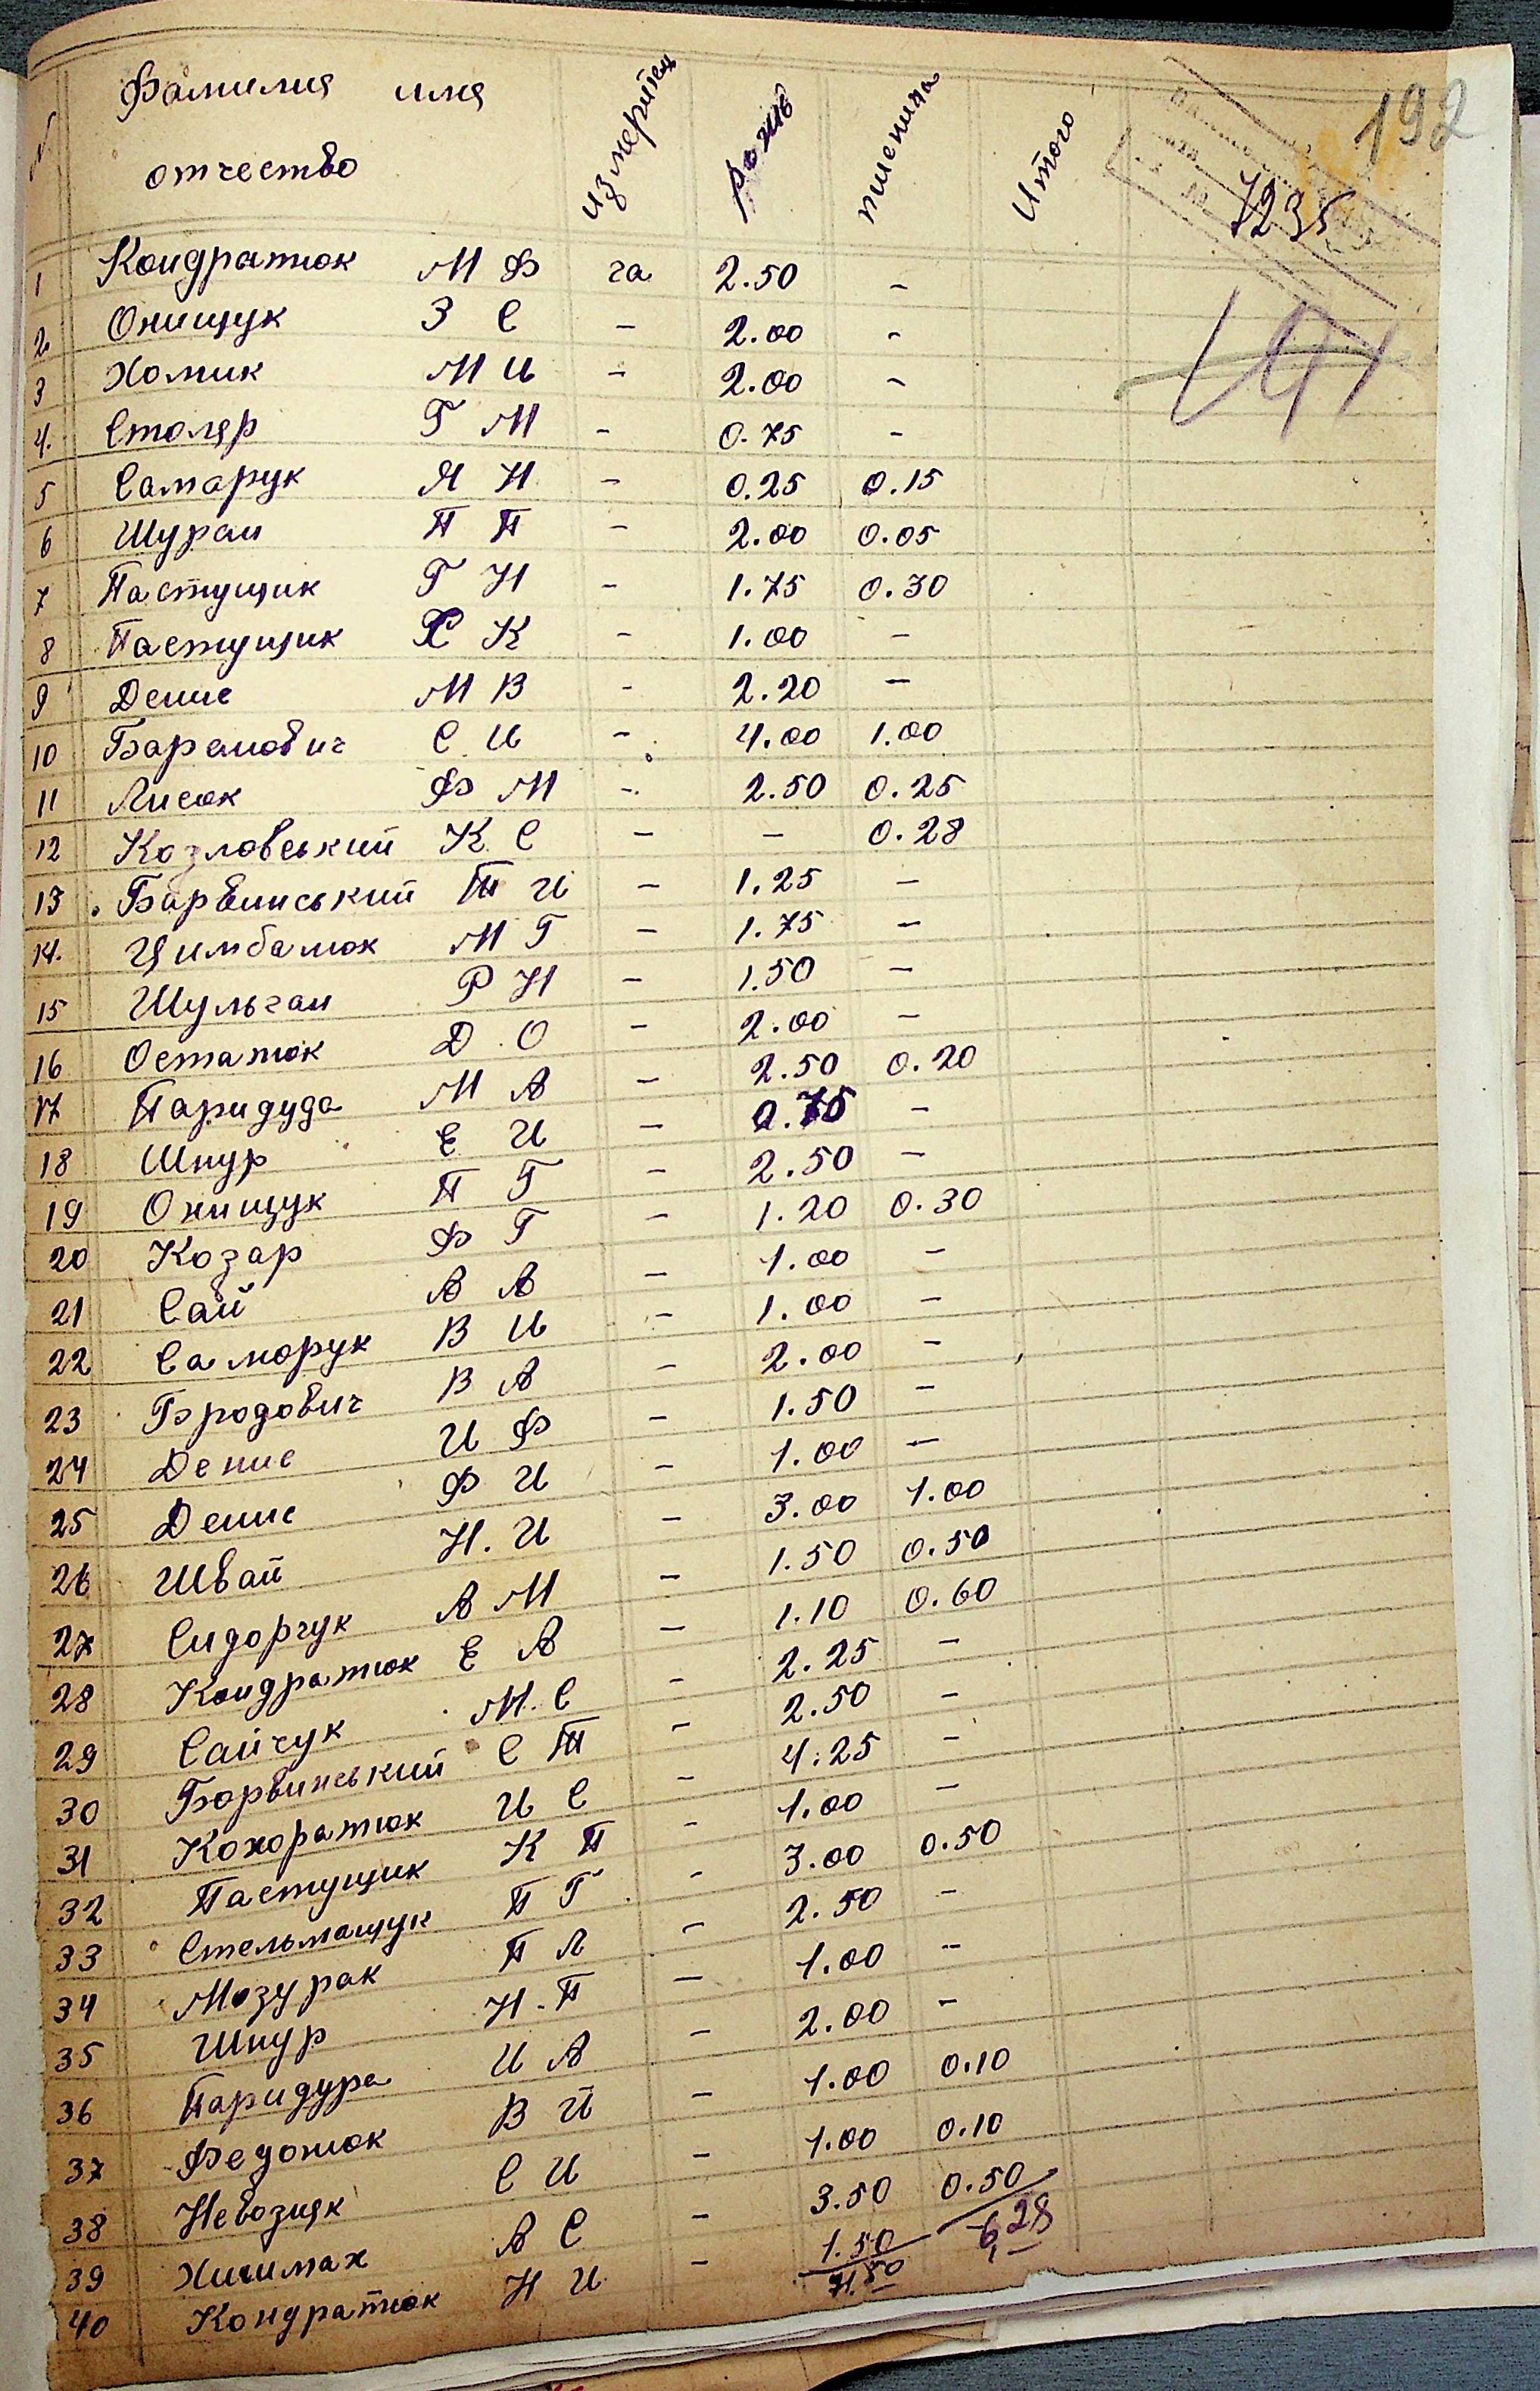 192
Фамилия имя отчество измеритель рожь пшеница Итого
7235
1 Кондратюк М Ф га 2.50 -
2 Онищук З С - 2.00 -
3 Хомик М И - 2.00 -
4. Столяр Г М - 0.75 -
5 Самарук Я Н - 0.25 0.15
6 Шуран П П - 2.00 0.05
7 Пастущик Г Н - 1.75 0.30
8 Пастущик Х К - 1.00 -
9 Денис М В - 2.20 -
10 Баранович С И - 4.00 1.00
11 Лисак Ф М - 2.50 0.25
12 Козловський К С - - 0.28
13 Барвинський Т И - 1.25 -
14. Цимбалюк М Г - 1.75 -
15 Шульган Р Н - 1.50 -
16 Остапюк Д О - 2.00 -
17 Паридуда М А - 2.50 0.20
18 Шнур Е И - 0.75 -
19 Онищук П Г - 2.50 -
20 Козар Ф Г - 1.20 0.30
21 Сай А А - 1.00 -
22 Саморук В И - 1.00 -
23 Бродович В А - 2.00 -
24 Денис И Ф - 1.50 -
25 Денис Ф И - 1.00 -
26 Швай Н. И - 3.00 1.00
27 Сидорчук А М - 1.50 0.50
28 Кондратюк Е А - 1.10 0.60
29 Сайчук М. С - 2.25 -
30 Барвинський С Т - 2.50 -
31 Кондратюк И С - 4.25 -
32 Пастущик К П - 1.00 -
33 Стельмащук П Г - 3.00 0.50
34 Мазурак П Л - 2.50 -
35 Шнур Н-П - 1.00 -
36 Паридура И А - 2.00 -
37 Федонюк В И - 1.00 0.10
38 Невозняк С И - 1.00 0.10
39 А С - 3.50 0.50
40 Кондратюк Н И - 1.50
71.50 6,28